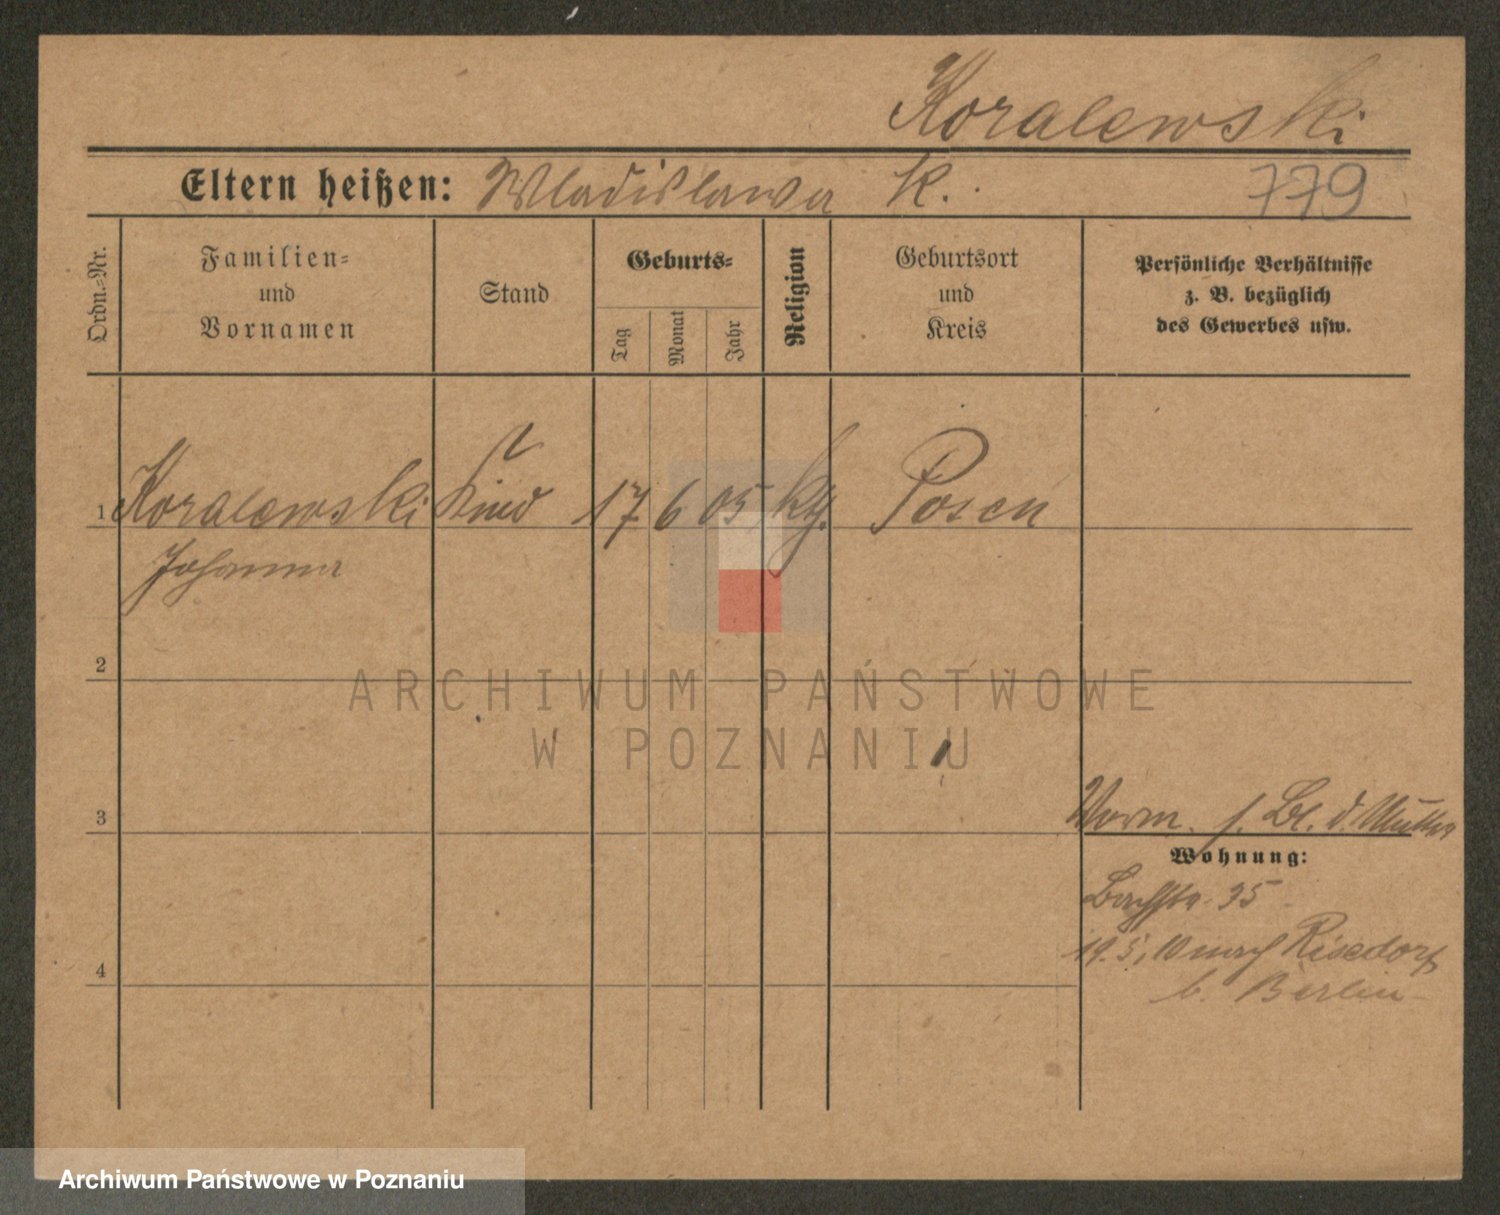 Koralewski
Eltern heißen: Wladislawa K.
779
Ordn.-Nr.
Familien-
und
Vornamen
Stand
Geburts-
Tag
Monat
Jahr
Religion
Geburtsort
und
Kreis
Persönliche Verhältnisse
z. B. bezüglich
des Gewerbes usw.
1 Koralewski Kind 17 6 05 kth. Posen
Johanna
2
ARCHIWUM PAŃSTWOWE
W POZNANIU
3
Vorm. s. Bl. d. Mutter
Wohnung:
Bachstr. 35
19.5.10 nach Rixdorf
b. Berlin
4
Archiwum Państwowe w Poznaniu